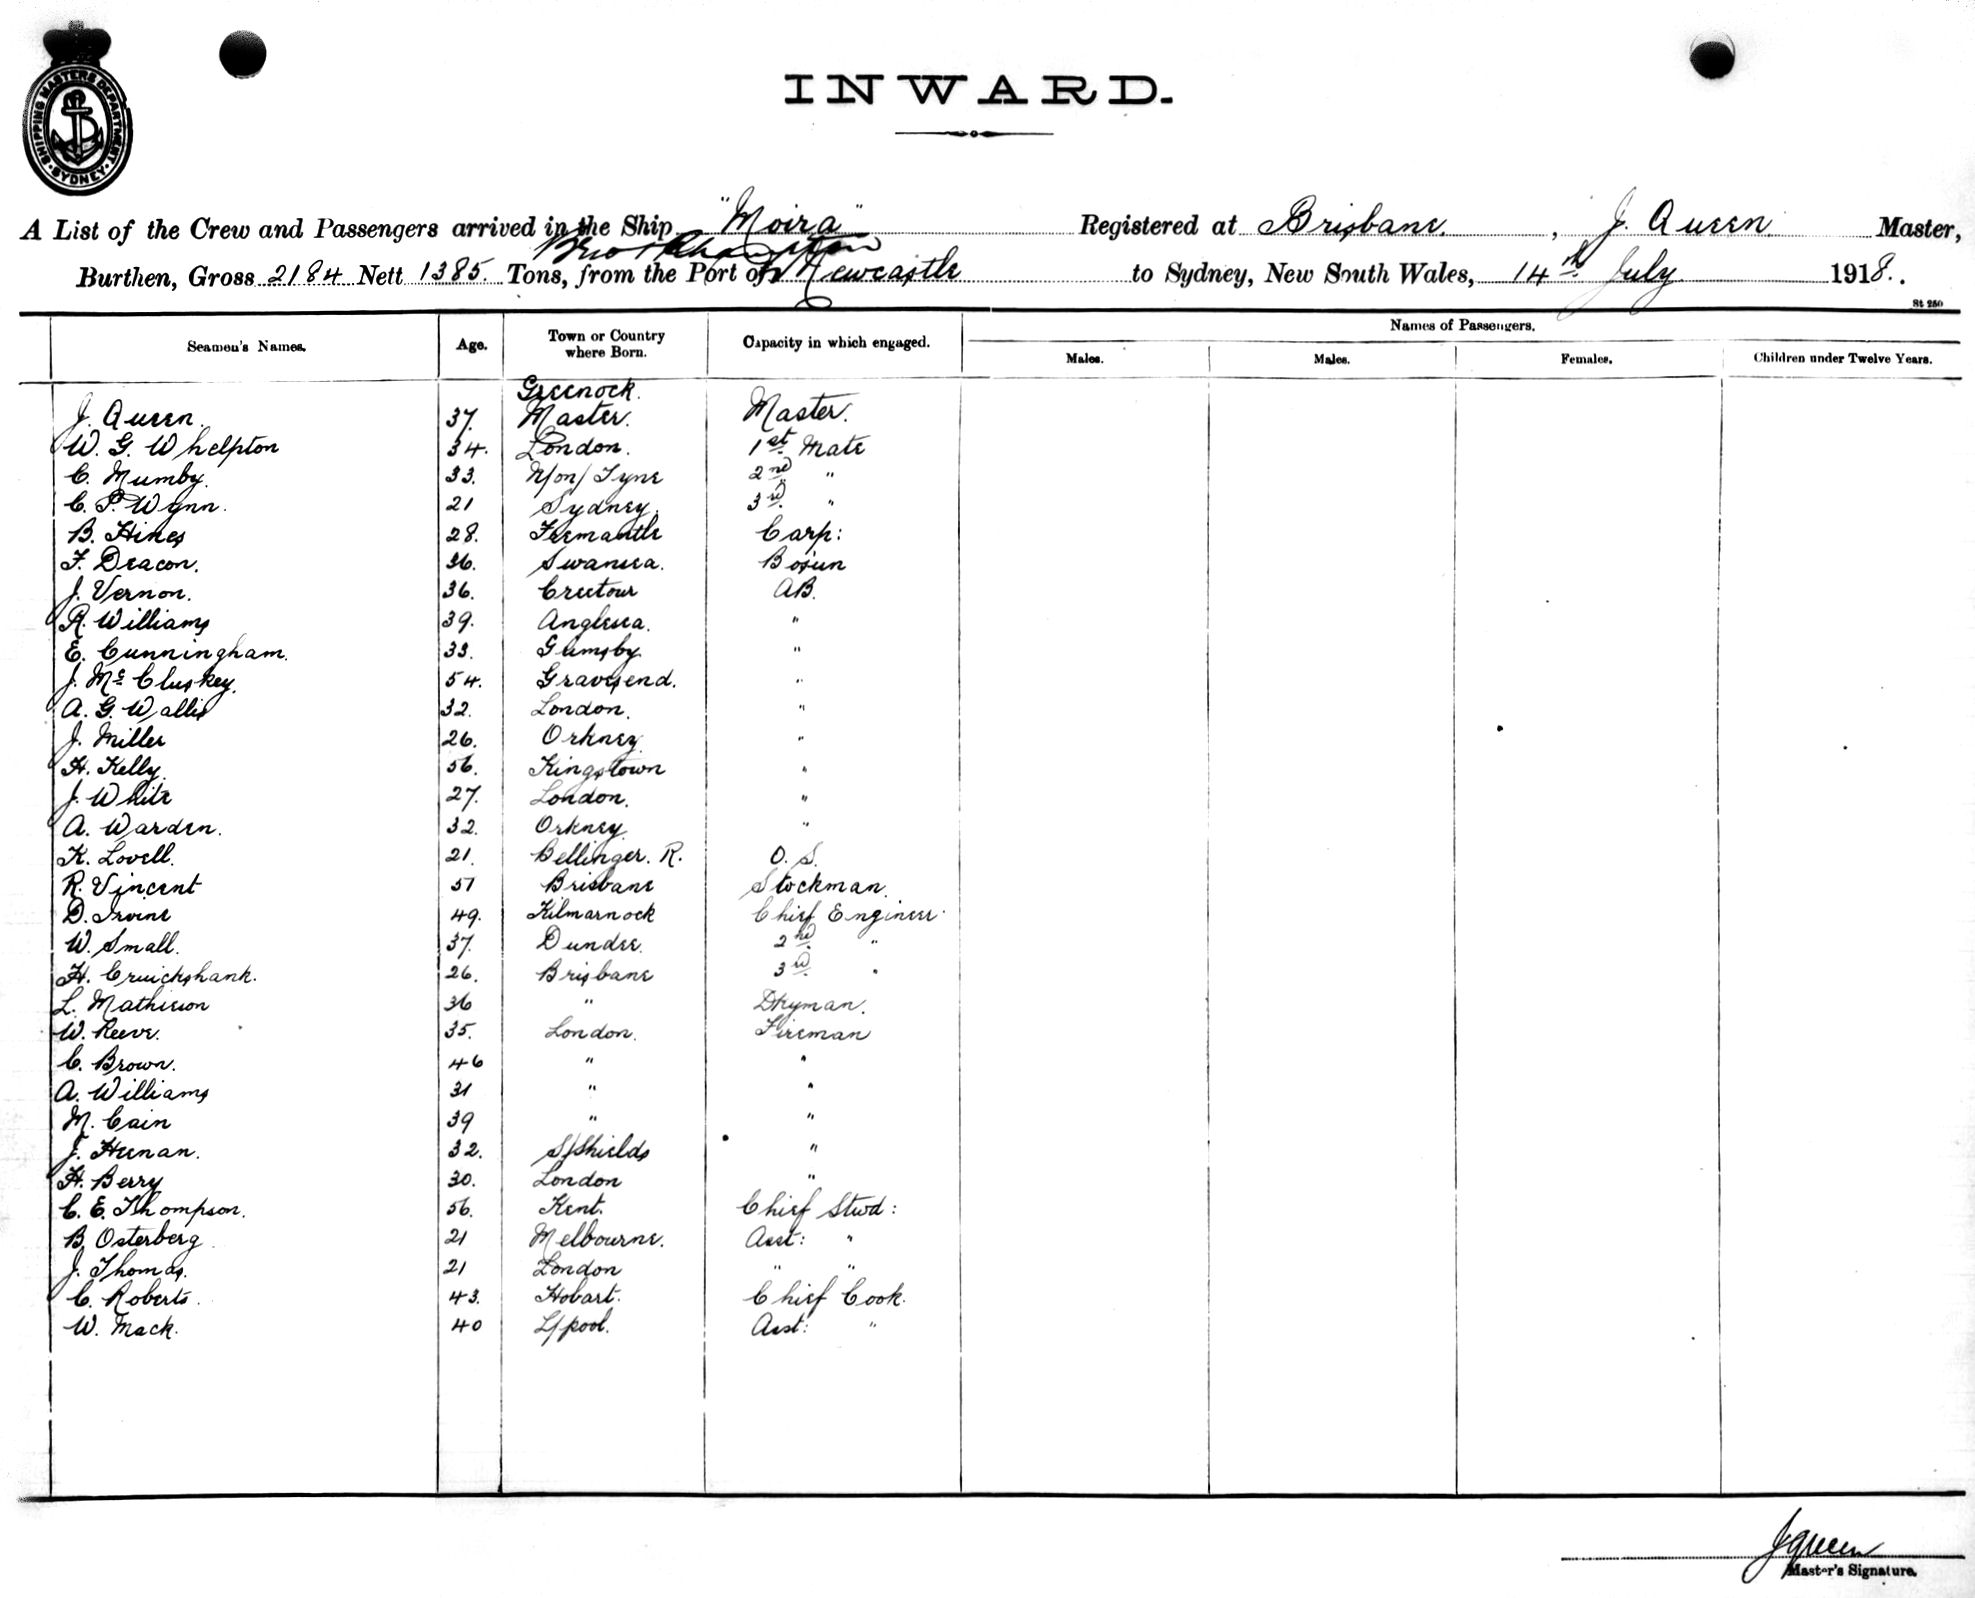 SHIPPING MASTERS DEPARTMENT · SYDNEY ·
INWARD.
A List of the Crew and Passengers arrived in the Ship "Moira" Registered at Brisbane, J. Queen Master,
Burthen, Gross 2184 Nett 1385. Tons, from the Port of Newcastle to Sydney, New South Wales, 14th July 1918.
St 250
Seamen's Names. Age. Town or Country where Born. Capacity in which engaged. Names of Passengers.
Males. Males. Females. Children under Twelve Years.
Greenock.
J. Queen. 37. Master. Master.
W. G. Whelpton 34. London. 1st Mate
C. Mumby. 33. N/on/Tyne 2nd "
C. P. Wynn. 21 Sydney. 3rd. "
B. Hines 28. Fremantle Carp:
F. Deacon. 36. Swansea. Bosun
J. Vernon. 36. AB.
R. Williams 39. Anglesea. "
E. Cunningham. 33. Grimsby "
J. McCluskey. 54. Gravesend. "
A. G. Wallis 32. London. "
J. Miller 26. Orkney "
H. Kelly 56. Kingstown "
J. White 27. London. "
A. Warden. 32. Orkney "
K. Lovell. 21. Bellinger. R. O. S.
R. Vincent 51 Brisbane Stockman
D. Irvine 49. Kilmarnock Chief Engineer
W. Small. 37. Dundee. 2nd. "
H. Cruickshank. 26. Brisbane 3rd. "
L. Mathieson 36 " Dkyman.
W. Reeve. 35. London. Fireman
C. Brown. 46 " "
A. Williams 31 " "
M. Cain 39 " "
J. Heenan. 32. S/Shields "
H. Berry 30. London "
C. E. Thompson. 56. Kent. Chief Stwd:
B. Osterberg 21 Melbourne. Asst: "
J. Thomas. 21 London " "
C. Roberts. 43. Hobart. Chief Cook.
W. Mack. 40 L/pool. Asst: "
J Queen
Master's Signature.